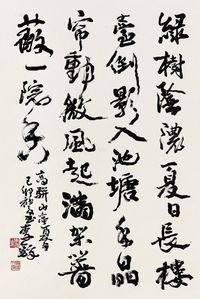 綠樹陰濃夏日長樓
臺倒影入池塘水晶
帘動微風起滿架薔
薇一院香
高駢山亭夏日
己卯 李鐸